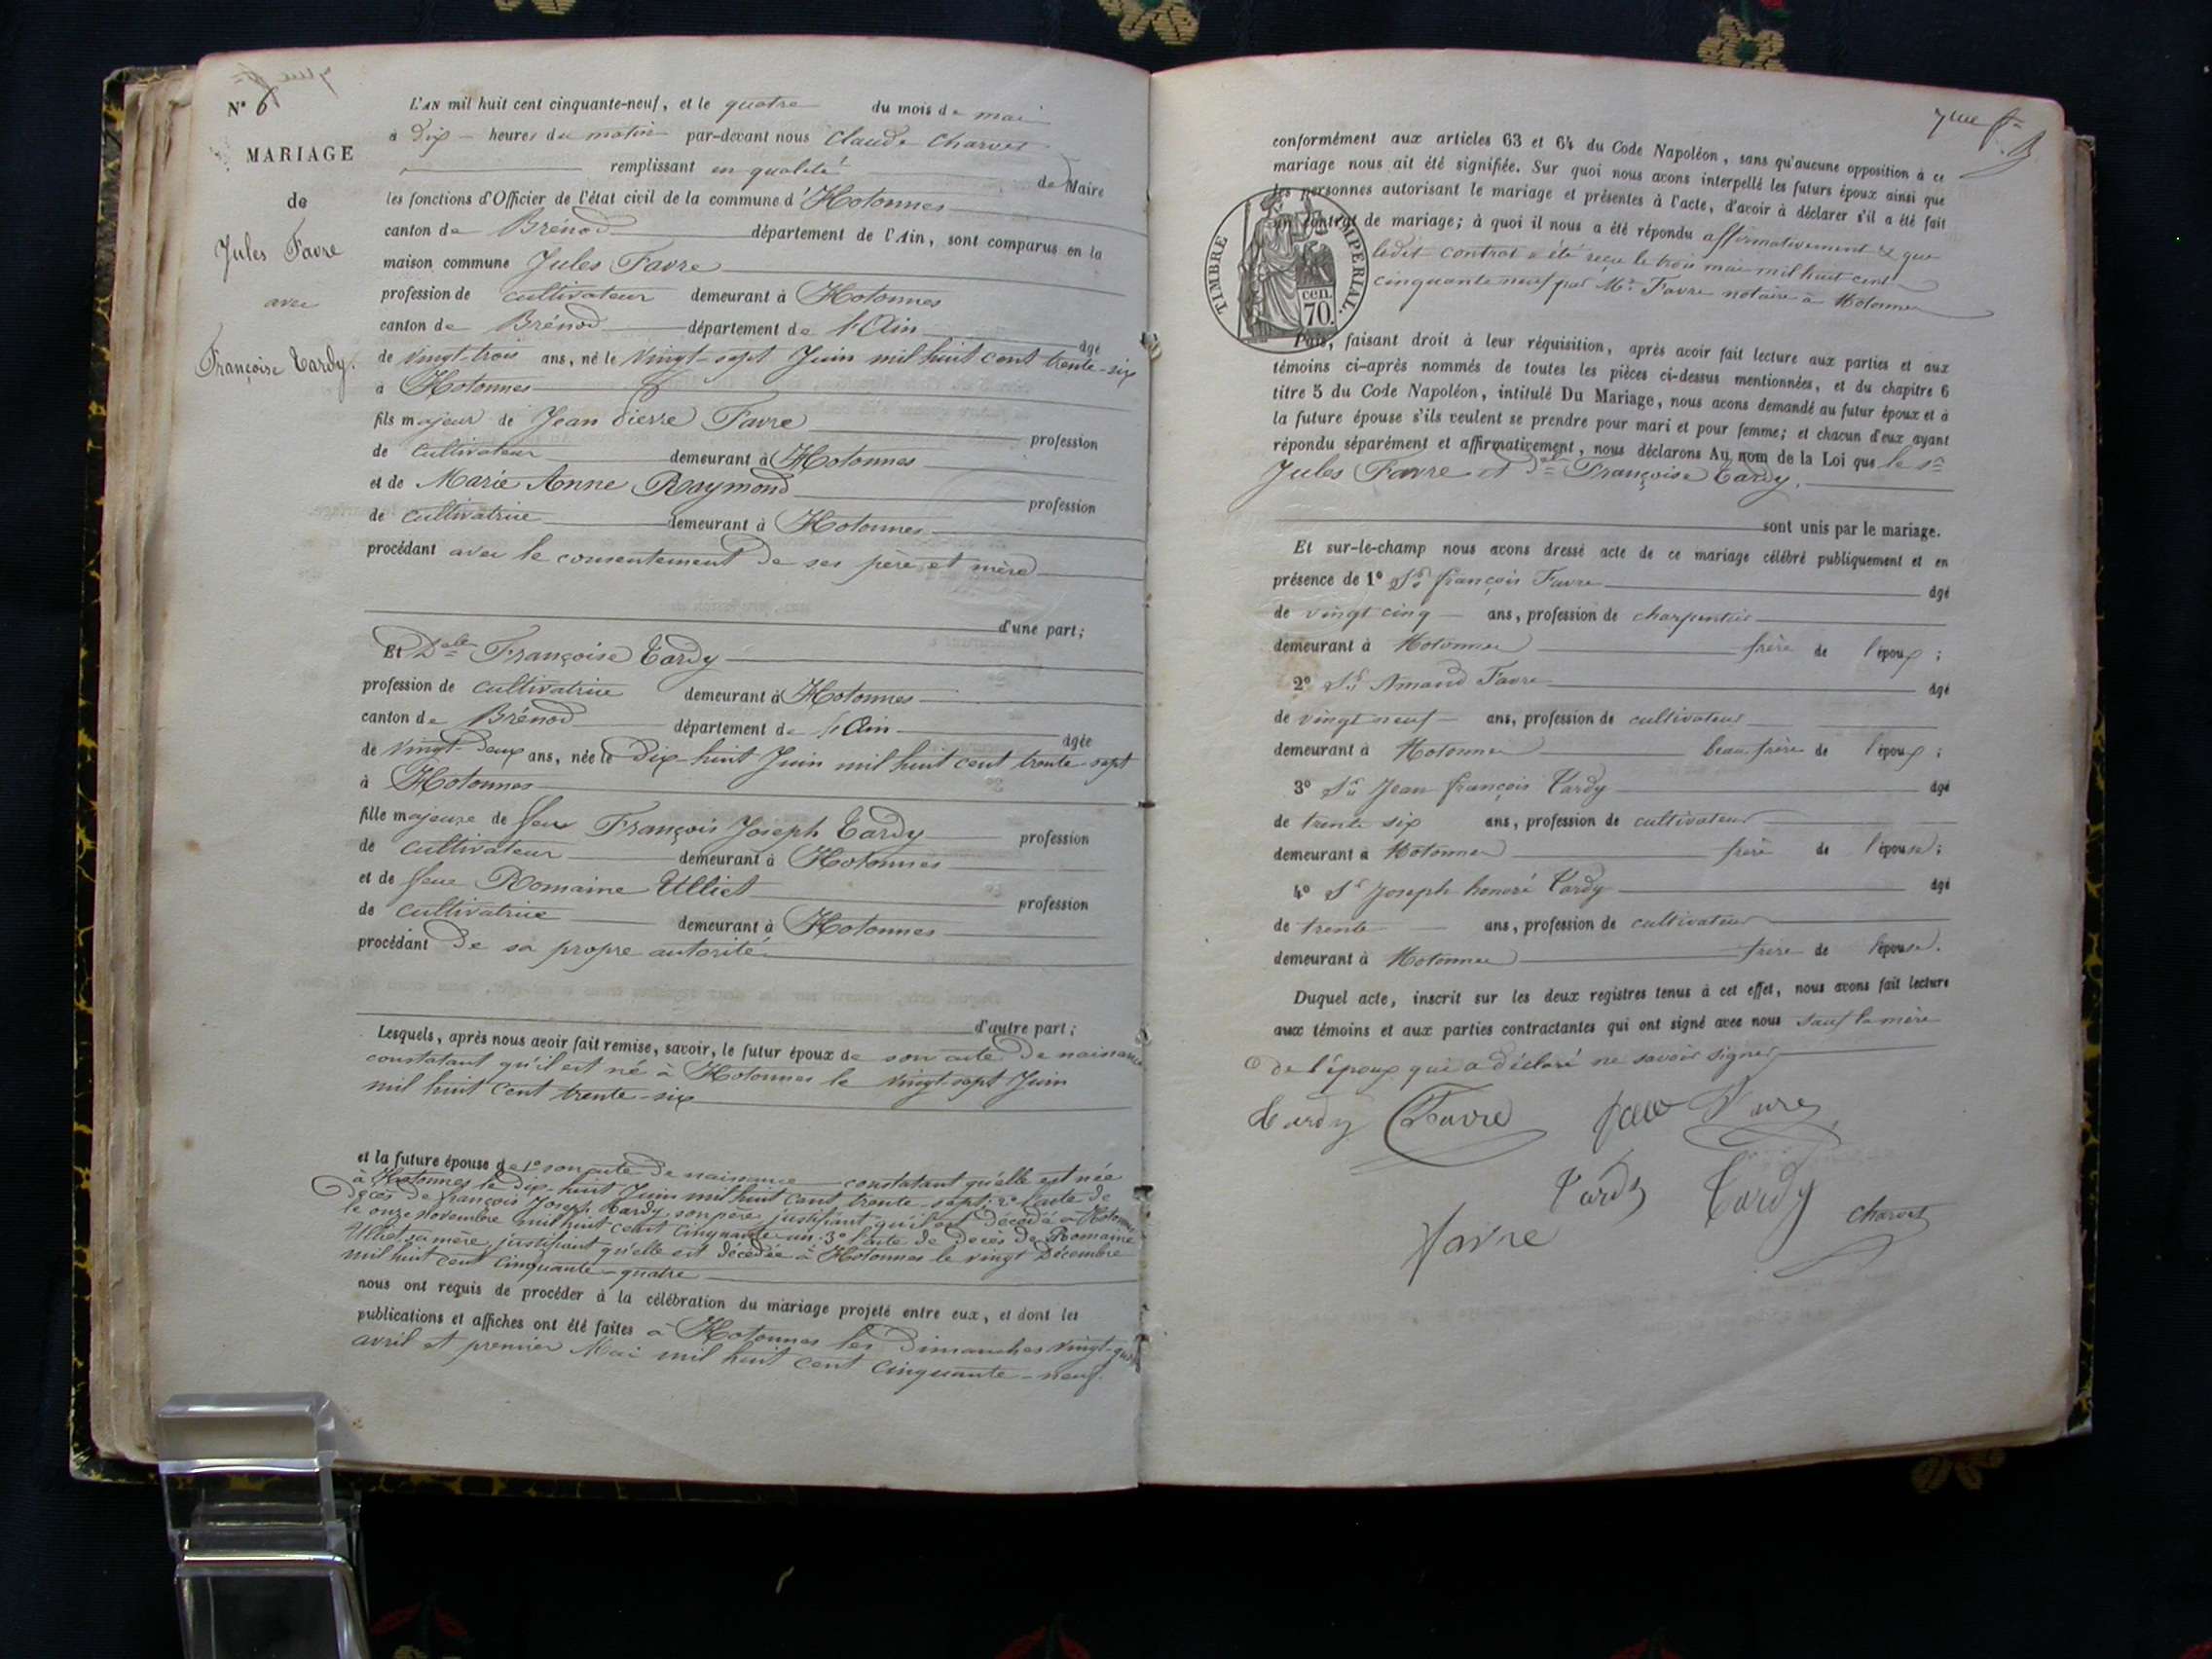 N° 6
MARIAGE
de
Jules Favre
avec
Françoise Tardy.
L'AN mil huit cent cinquante-neuf, et le quatre du mois de mai
à dix heures du matin par-devant nous Claude Charvet
remplissant en qualité de Maire
les fonctions d'Officier de l'état civil de la commune d'Hotonnes
canton de Brénod département de l'Ain, sont comparus en la
maison commune Jules Favre
profession de cultivateur demeurant à Hotonnes
canton de Brénod département de l'Ain âgé
de vingt-trois ans, né le vingt-sept Juin mil huit cent trente-six
à Hotonnes
fils majeur de Jean Pierre Favre profession
de cultivateur demeurant à Hotonnes
et de Marie Anne Raymond profession
de cultivatrice demeurant à Hotonnes
procédant avec le consentement de ses père et mère
d'une part;
Et Delle Françoise Tardy
profession de cultivatrice demeurant à Hotonnes
canton de Brénod département de l'Ain âgée
de vingt-deux ans, née le dix-huit Juin mil huit cent trente-sept
à Hotonnes
fille majeure de feu François Joseph Tardy profession
de cultivateur demeurant à Hotonnes
et de feue Romaine Ulliet profession
de cultivatrice demeurant à Hotonnes
procédant de sa propre autorité
d'autre part;
Lesquels, après nous avoir fait remise, savoir, le futur époux de son acte de naissance
constatant qu'il est né à Hotonnes le vingt-sept Juin
mil huit cent trente-six
et la future épouse de 1° son acte de naissance constatant qu'elle est née
à Hotonnes le dix-huit Juin mil huit cent trente-sept; 2° l'acte de
décès de françois Joseph Tardy, son père, justifiant qu'il est décédé à Hotonnes
le onze Novembre mil huit cent cinquante-un. 3° l'acte de décès de Romaine
Ulliet sa mère, justifiant qu'elle est décédée à Hotonnes le vingt Décembre
mil huit cent cinquante-quatre
nous ont requis de procéder à la célébration du mariage projeté entre eux, et dont les
publications et affiches ont été faites à Hotonnes les Dimanches vingt-quatre
avril et premier Mai mil huit cent cinquante-neuf.
7me
conformément aux articles 63 et 64 du Code Napoléon, sans qu'aucune opposition à ce
mariage nous ait été signifiée. Sur quoi nous avons interpellé les futurs époux ainsi que
les personnes autorisant le mariage et présentes à l'acte, d'avoir à déclarer s'il a été fait
un contrat de mariage; à quoi il nous a été répondu affirmativement & que
ledit contrat a été reçu le trois mai mil huit cent
cinquante neuf par Me Favre notaire à Hotonnes
TIMBRE IMPERIAL.
70. cen.
Puis, faisant droit à leur réquisition, après avoir fait lecture aux parties et aux
témoins ci-après nommés de toutes les pièces ci-dessus mentionnées, et du chapitre 6
titre 5 du Code Napoléon, intitulé Du Mariage, nous avons demandé au futur époux et à
la future épouse s'ils veulent se prendre pour mari et pour femme; et chacun d'eux ayant
répondu séparément et affirmativement, nous déclarons Au nom de la Loi que le sr
Jules Favre et Delle Françoise Tardy.
sont unis par le mariage.
Et sur-le-champ nous avons dressé acte de ce mariage célébré publiquement et en
présence de 1° Sr françois Favre âgé
de vingt cinq ans, profession de charpentier
demeurant à Hotonnes frère de l'époux;
2° Sr Amand Favre âgé
de vingt neuf ans, profession de cultivateur
demeurant à Hotonnes beau frère de l'époux;
3° Sr Jean françois Tardy âgé
de trente six ans, profession de cultivateur
demeurant à Hotonnes frère de l'épouse;
4° Sr Joseph honoré Tardy âgé
de trente ans, profession de cultivateur
demeurant à Hotonnes frère de l'épouse.
Duquel acte, inscrit sur les deux registres tenus à cet effet, nous avons fait lecture
aux témoins et aux parties contractantes qui ont signé avec nous sauf la mère
de l'époux qui a déclaré ne savoir signer
Tardy Favre Favre
Tardy Tardy Charvet
Favre